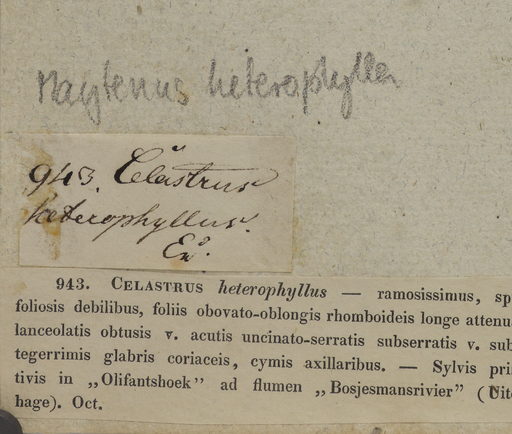 Maytenus heterophylla
943. Celastrus
heterophyllus.
943. CELASTRUS heterophyllus — ramosissimus, sp
foliosis debilibus, foliis obovato-oblongis rhomboideis longe attenu
lanceolatis obtusis v. acutis uncinato-serratis subserratis v. sub
tegerrimis glabris coriaceis, cymis axillaribus. — Sylvis pri
tivis in „Olifantshoek” ad flumen „Bosjesmansrivier” (Uite
hage). Oct.